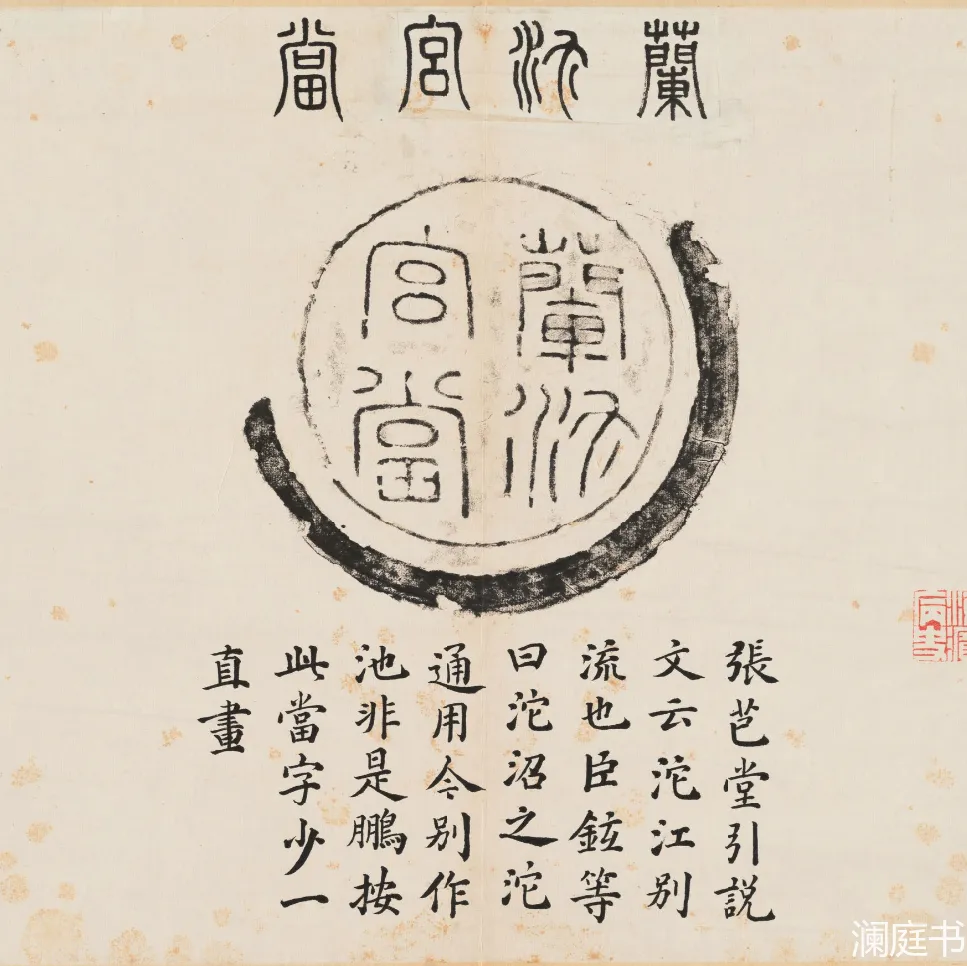 蘭池宮當
蘭池
宮當
張芑堂引説
文云沱江别
流也臣鉉等
曰沱沼之沱
通用今别作
池非是鵬按
此當字少一
直畫
澜庭书